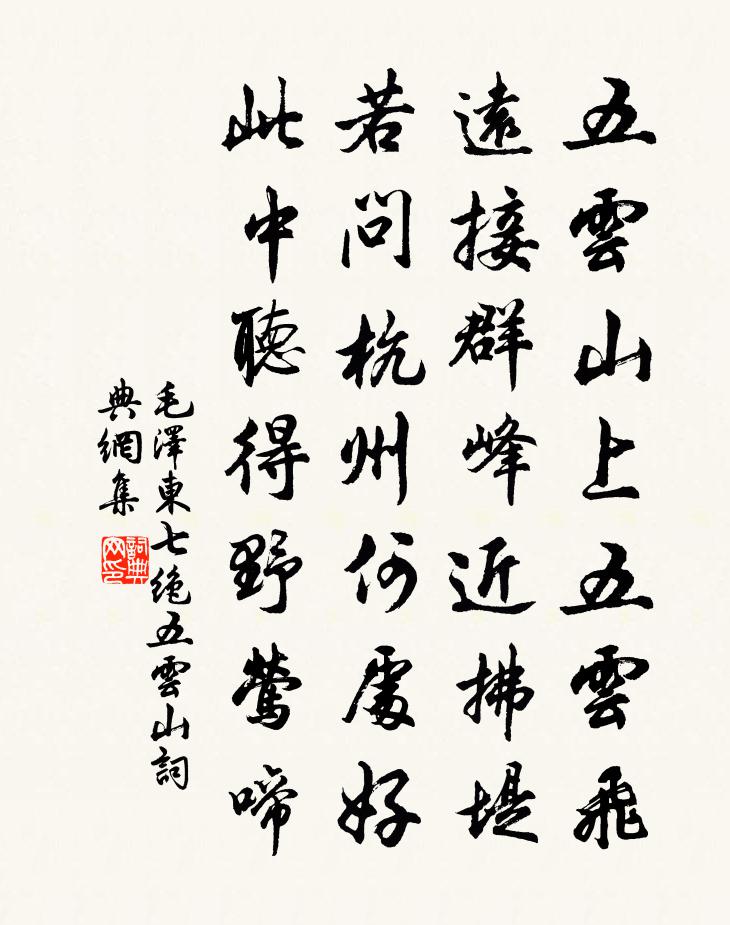 五雲山上五雲飛
遠接群峰近拂堤
若問杭州何處好
此中聽得野鶯啼
毛澤東七絕五雲山詞
典網集
詞典
网